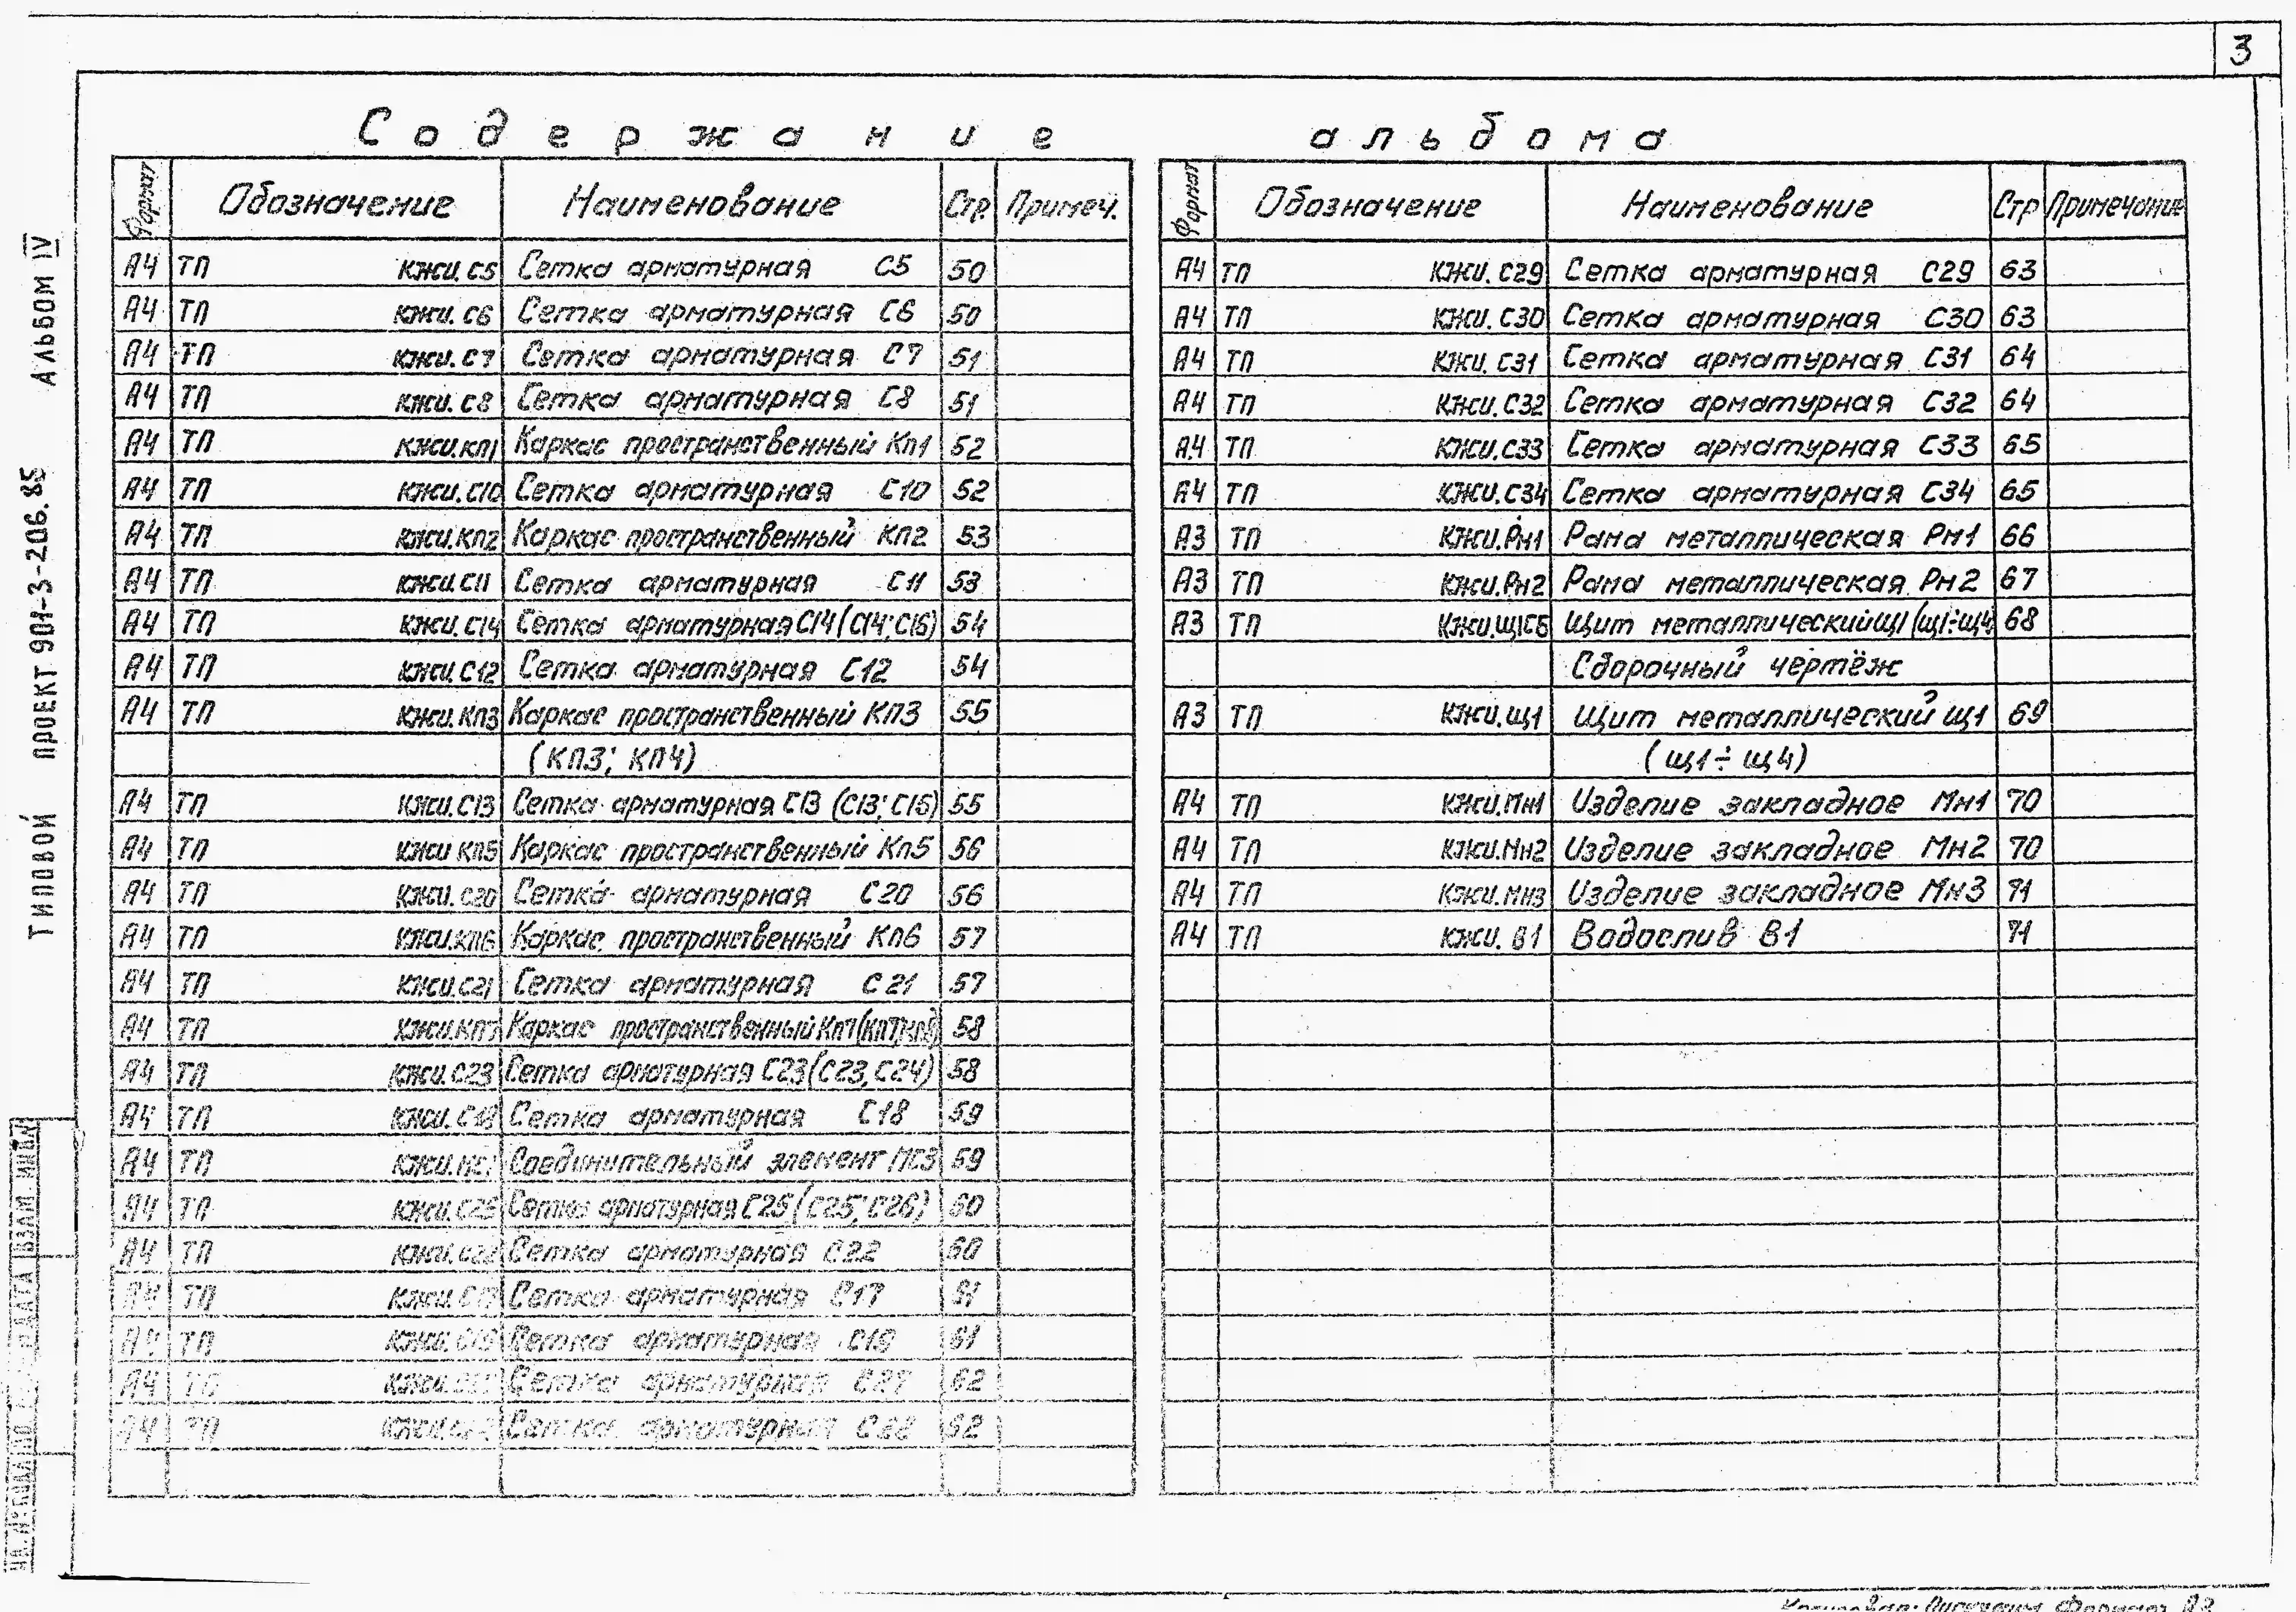 3
Содержание альбома
Формат Обозначение Наименование Стр. Примеч.
А4 ТП КЖИ.С5 Сетка арматурная С5 50
А4 ТП КЖИ.С6 Сетка арматурная С6 50
А4 ТП КЖИ.С7 Сетка арматурная С7 51
А4 ТП КЖИ.С8 Сетка арматурная С8 51
А4 ТП КЖИ.КП1 Каркас пространственный Кп1 52
А4 ТП КЖИ.С10 Сетка арматурная С10 52
А4 ТП КЖИ.КП2 Каркас пространственный КП2 53
А4 ТП КЖИ.С11 Сетка арматурная С11 53
А4 ТП КЖИ.С14 Сетка арматурная С14 (С14; С16) 54
А4 ТП КЖИ.С12 Сетка арматурная С12 54
А4 ТП КЖИ.КП3 Каркас пространственный КП3 55
(КП3; КП4)
А4 ТП КЖИ.С13 Сетка арматурная С13 (С13; С15) 55
А4 ТП КЖИ КП5 Каркас пространственный Кп5 56
А4 ТП КЖИ.С20 Сетка арматурная С20 56
А4 ТП КЖИ.КП6 Каркас пространственный Кп6 57
А4 ТП КЖИ.С21 Сетка арматурная С21 57
А4 ТП КЖИ.КП7 Каркас пространственный Кп7 58
А4 ТП КЖИ.С23 Сетка арматурная С23 (С23, С24) 58
А4 ТП КЖИ.С18 Сетка арматурная С18 59
А4 ТП Соединительный элемент МС3 59
А4 ТП КЖИ.С25 Сетка арматурная С25 (С25; С26) 60
А4 ТП КЖИ.С22 Сетка арматурная С22 60
А4 ТП КЖИ.С17 Сетка арматурная С17 61
А4 ТП КЖИ.С19 Сетка арматурная С19 61
А4 ТП Сетка арматурная С27 62
А4 ТП Сетка арматурная С28 62
Формат Обозначение Наименование Стр Примечание
А4 ТП КЖИ.С29 Сетка арматурная С29 63
А4 ТП КЖИ.С30 Сетка арматурная С30 63
А4 ТП КЖИ.С31 Сетка арматурная С31 64
А4 ТП КЖИ.С32 Сетка арматурная С32 64
А4 ТП КЖИ.С33 Сетка арматурная С33 65
А4 ТП КЖИ.С34 Сетка арматурная С34 65
А3 ТП КЖИ.Рм1 Рама металлическая Рм1 66
А3 ТП КЖИ.Рм2 Рама металлическая Рм2 67
А3 ТП КЖИ.Щ1СБ Щит металлический Щ1 (щ1÷щ4) 68
Сборочный чертёж
А3 ТП КЖИ.Щ1 Щит металлический щ1 69
(щ1÷щ4)
А4 ТП КЖИ.Мн1 Изделие закладное Мн1 70
А4 ТП КЖИ.Мн2 Изделие закладное Мн2 70
А4 ТП КЖИ.Мн3 Изделие закладное Мн3 71
А4 ТП КЖИ.В1 Водослив В1 71
ТИПОВОЙ ПРОЕКТ 901-3-206.85 АЛЬБОМ IV
ДАТА ВЗАМ. ИНВ.№
Формат А3